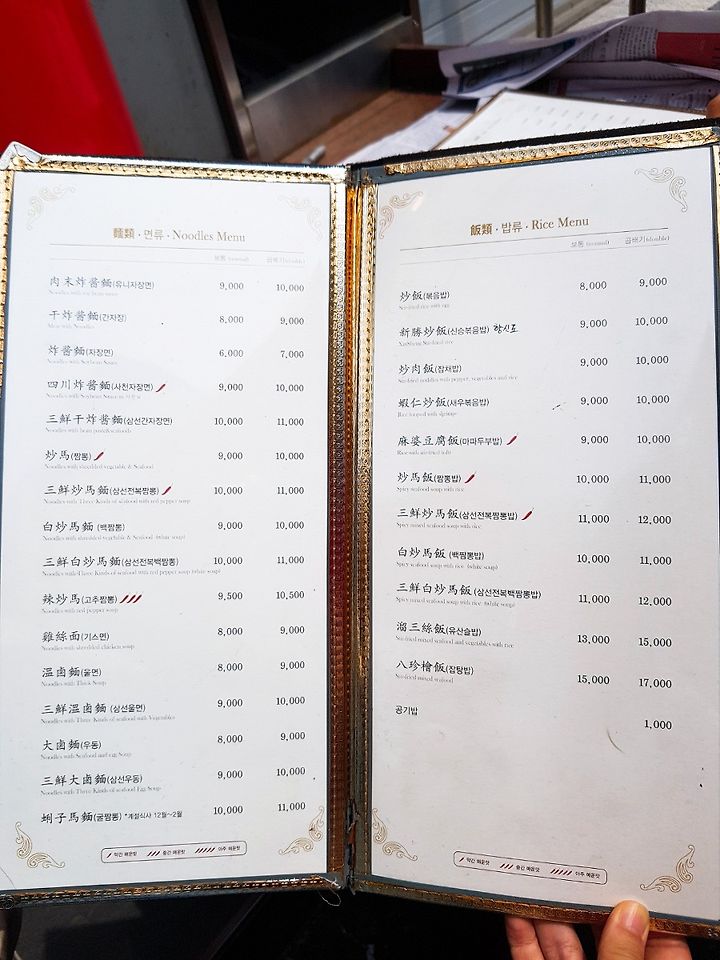 麵類 · 면류 · Noodles Menu
보통 (normal) 곱배기(double)
肉末炸醬麵(유니자장면) 9,000 10,000
Noodles with soy bean sauce
干炸醬麵(간자장) 8,000 9,000
Meat with Noodles
炸醬麵(자장면) 6,000 7,000
Noodles with Soybean Sauce
四川炸醬麵(사천자장면) 9,000 10,000
Noodles with Soybean Sauce
三鮮干炸醬麵(삼선간자장면) 10,000 11,000
Noodles with bean paste&seafoods
炒馬(짬뽕) 9,000 10,000
Noodles with shredded vegetable & Seafood
三鮮炒馬麵(삼선전복짬뽕) 10,000 11,000
Noodles with Three Kinds of seafood with red pepper soup
白炒馬麵 (백짬뽕) 9,000 10,000
Noodles with shredded vegetable & Seafood (white soup)
三鮮白炒馬麵(삼선전복백짬뽕) 10,000 11,000
Noodles with Three Kinds of seafood with red pepper soup (white soup)
辣炒馬(고추짬뽕) 9,500 10,500
Noodles with red pepper soup
雞絲面(기스면) 8,000 9,000
Noodles with shredded chicken soup
溫鹵麵(울면) 8,000 9,000
Noodles with Thick Soup
三鮮溫鹵麵 (삼선울면) 9,000 10,000
Noodles with Three Kinds of seafood with Vegetables
大鹵麵(우동) 8,000 9,000
Noodles with Seafood and egg Soup
三鮮大鹵麵(삼선우동) 9,000 10,000
Noodles with Three Kinds of seafood Egg Soup
蜊子馬麵(굴짬뽕) *계절식사 12월~2월 10,000 11,000
약간 매운맛 중간 매운맛 아주 매운맛
飯類 · 밥류 · Rice Menu
보통 (normal) 곱배기(double)
炒飯(볶음밥) 8,000 9,000
Stir-fried rice with
新勝炒飯(신승볶음밥) 향신료 9,000 10,000
XinSheng Stir-fried rice
炒肉飯(잡채밥) 9,000 10,000
Stir-fried noddles with pepper, vegetables and rice
蝦仁炒飯(새우볶음밥) 9,000 10,000
Rice topped with shrimps
麻婆豆腐飯(마파두부밥) 9,000 10,000
Rice with stir-fried tofu
炒馬飯(짬뽕밥) 10,000 11,000
Spicy seafood soup with rice
三鮮炒馬飯(삼선전복짬뽕밥) 11,000 12,000
Spicy mixed seafood soup with rice
白炒馬飯 (백짬뽕밥) 10,000 11,000
Spicy seafood soup with rice (white soup)
三鮮白炒馬飯(삼선전복백짬뽕밥) 11,000 12,000
Spicy mixed seafood soup with rice (white soup)
溜三絲飯(유산슬밥) 13,000 15,000
Stir-fried mixed seafood and vegetables with rice
八珍檜飯(잡탕밥) 15,000 17,000
Stir-fried mixed seafood
공기밥 1,000
약간 매운맛 중간 매운맛 아주 매운맛